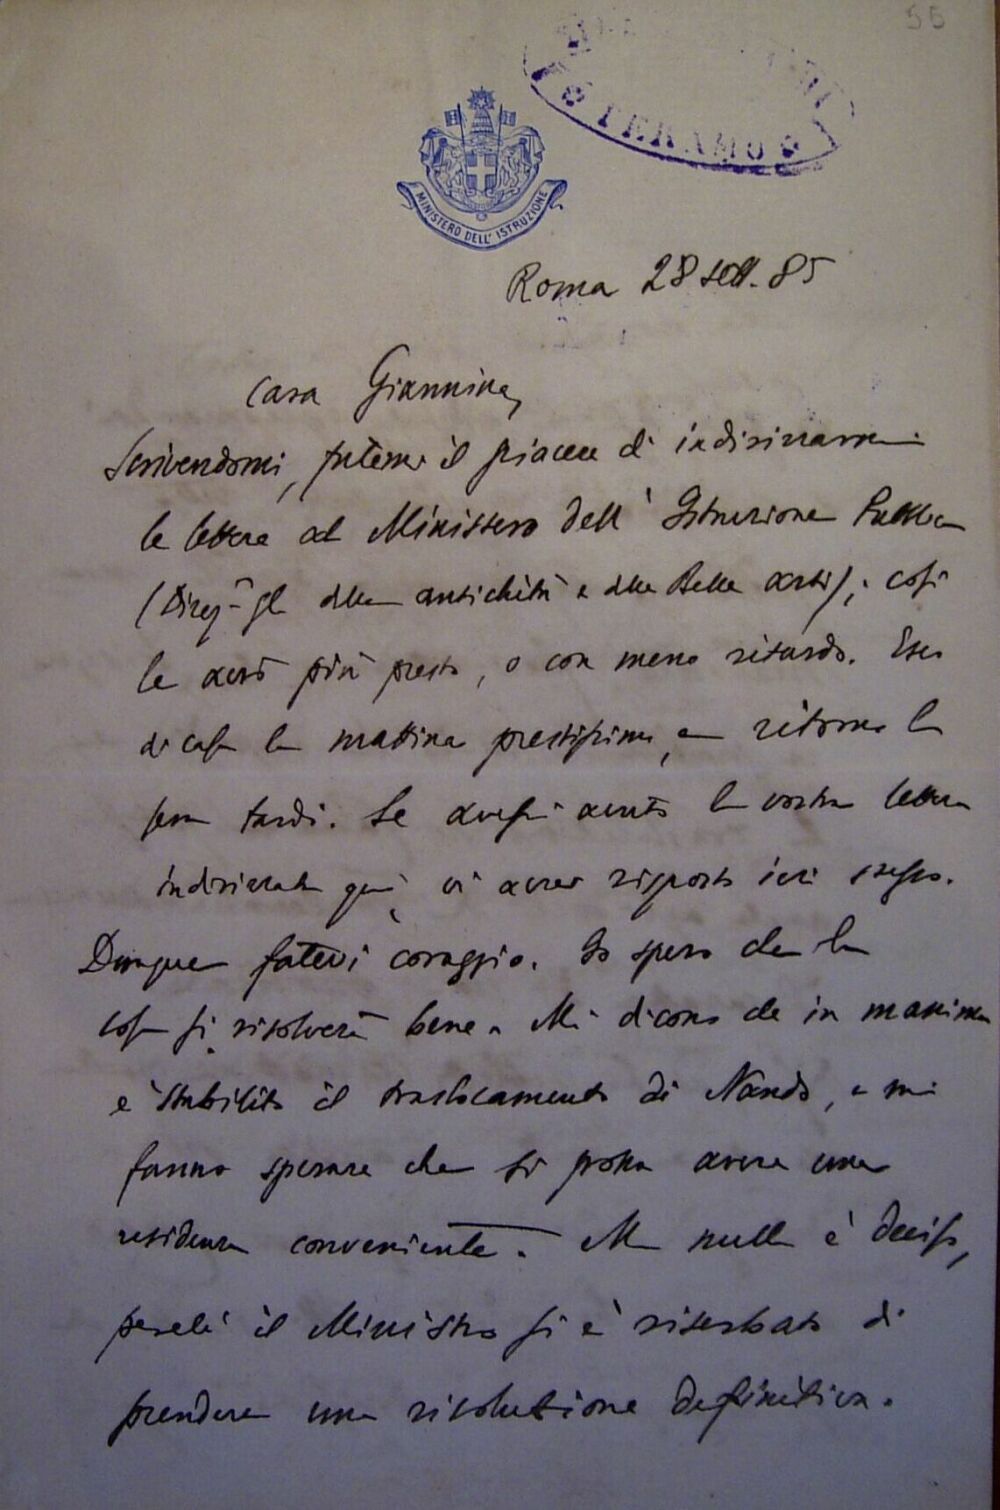 55
TERAMO
MINISTERO DELL' ISTRUZIONE
Roma 28 sett. 85
Cara Giannina,
Scrivendomi, fatemi il piacere di indirizzarmi
le lettere al Ministero dell' Istruzione Pubblica
(Direz. gle delle antichità e delle Belle arti); così
le avrò più presto, o con meno ritardo. Esco
di casa la mattina prestissimo, e ritorno la
sera tardi. Se avessi avuto la vostra lettera
indirizzata qui, vi avrei risposto ieri stesso.
Dunque fatevi coraggio. Io spero che la
cosa si risolverà bene. Mi dicono che in massima
è stabilito il traslocamento di Nando, e mi
fanno sperare che si possa avere una
residenza conveniente. Ma nulla è deciso,
perché il Ministro si è riserbato di
prendere una risoluzione definitiva.